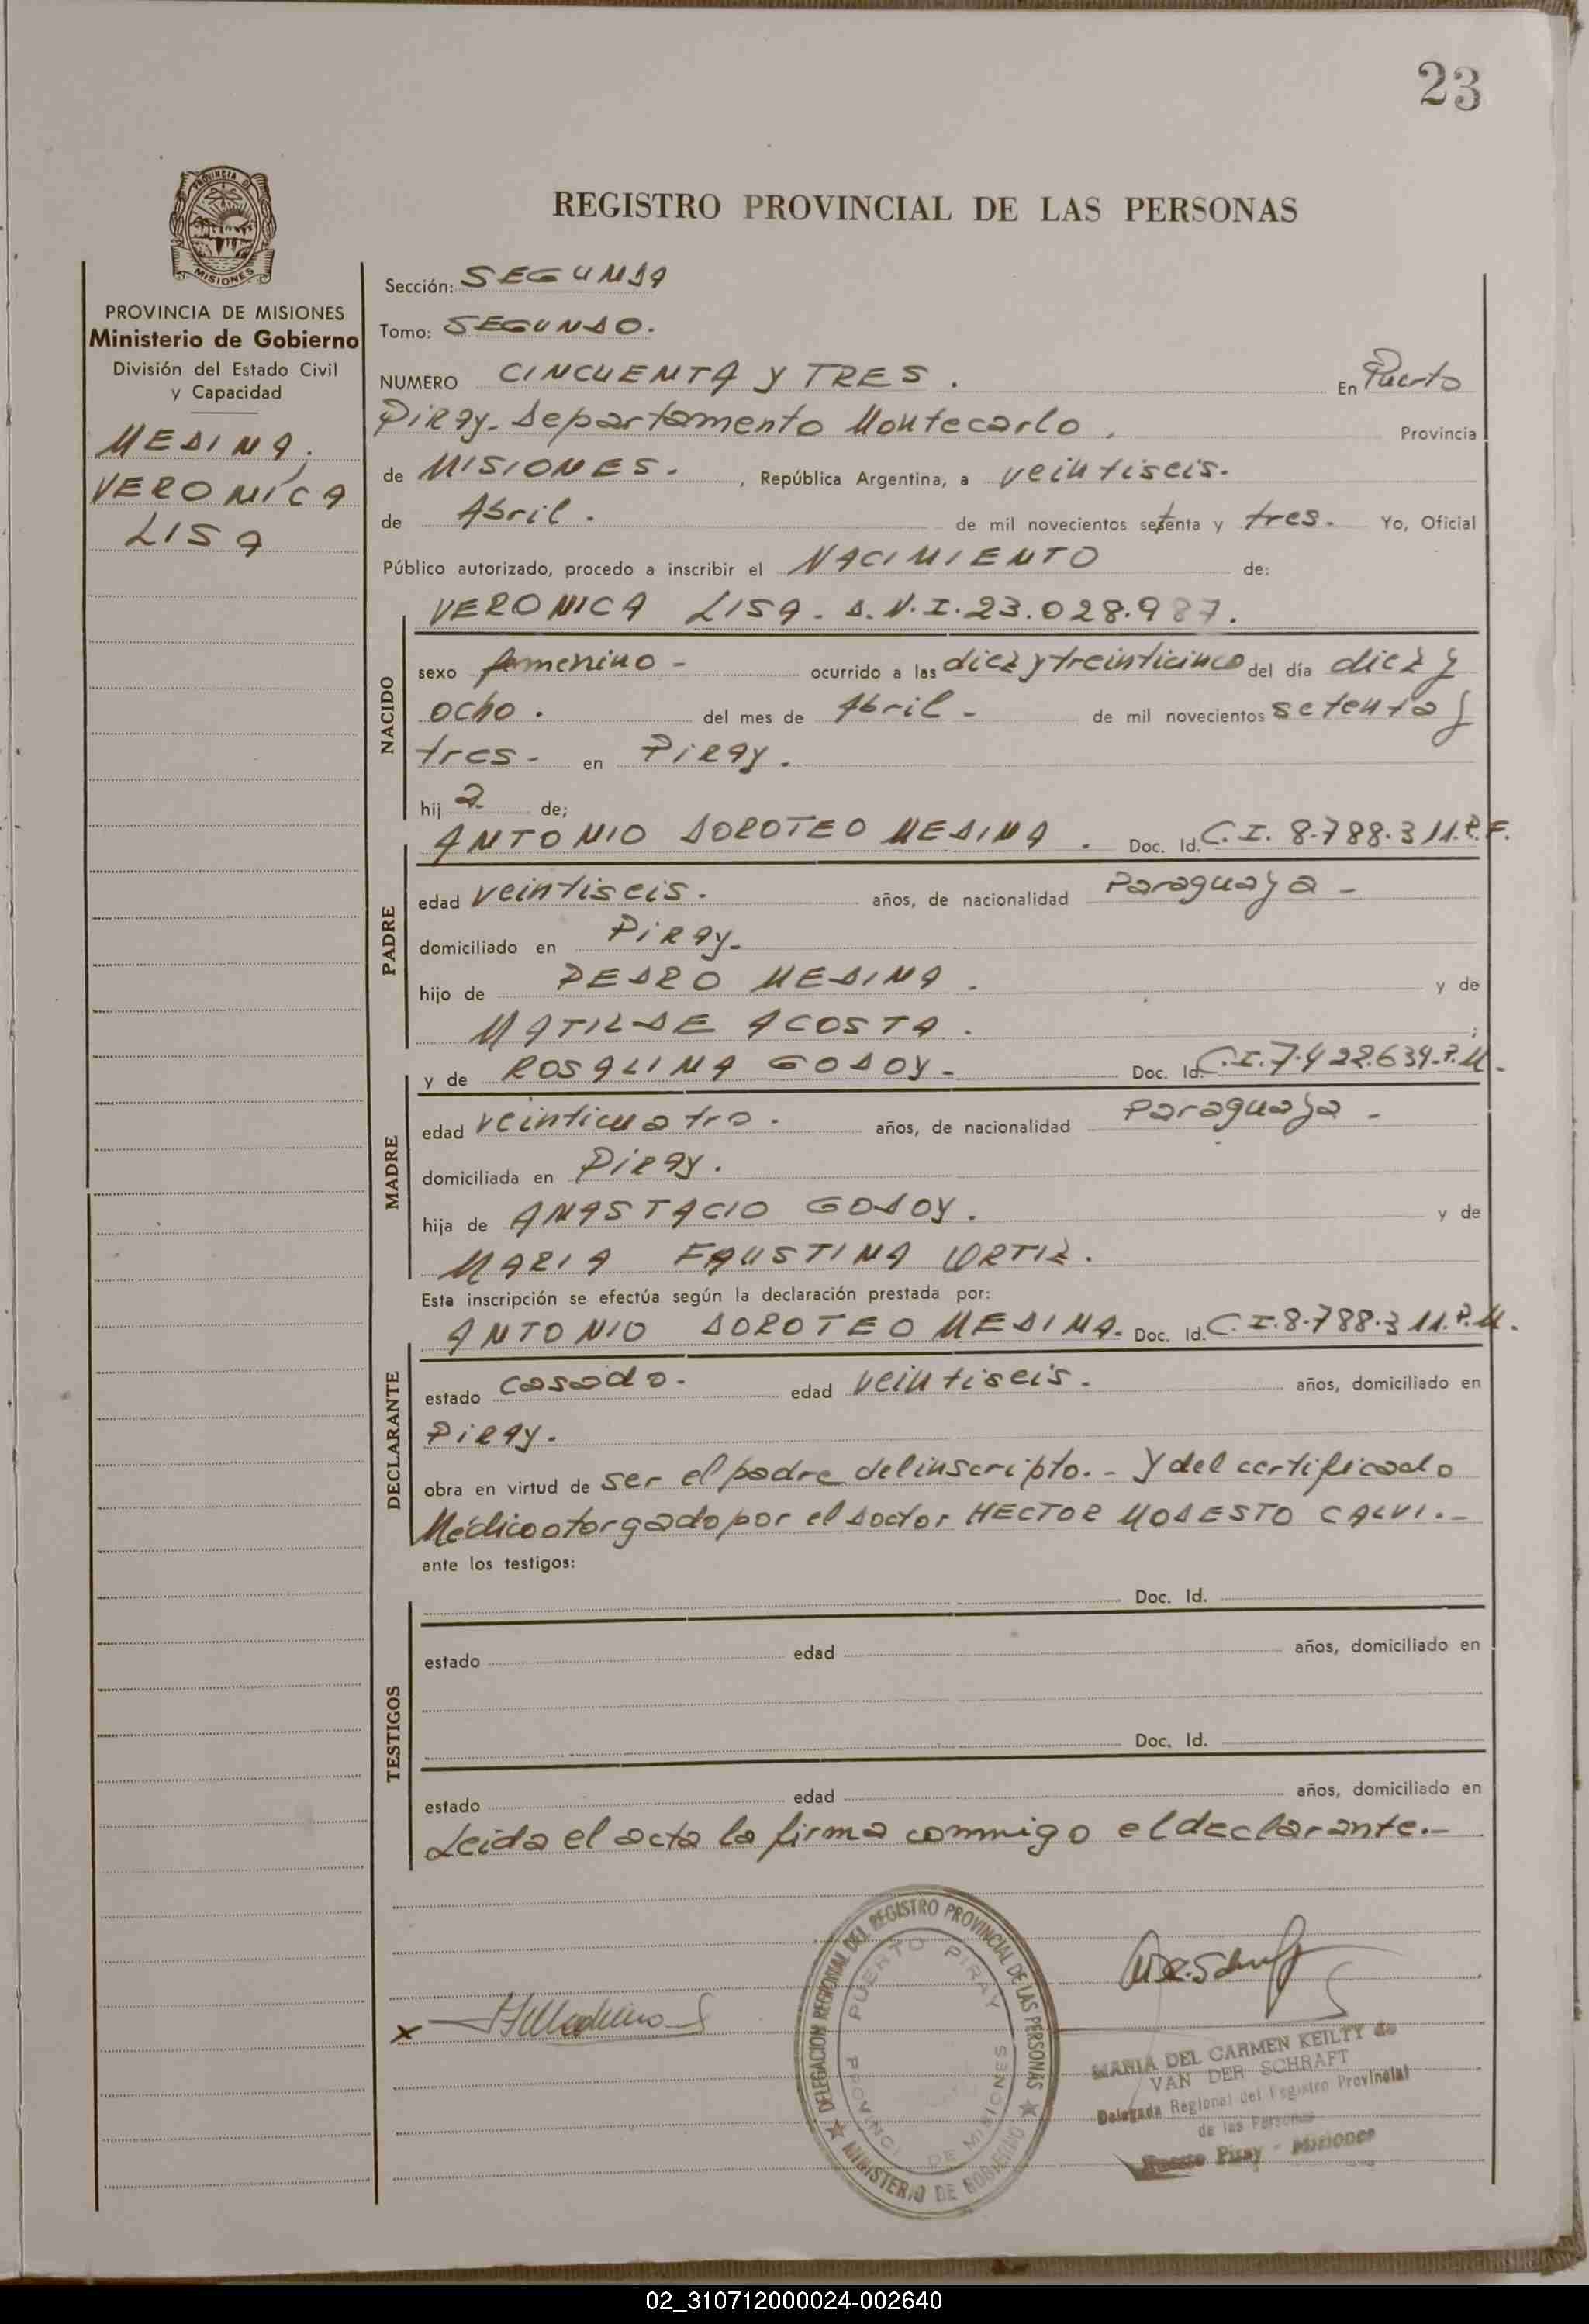 23
REGISTRO PROVINCIAL DE LAS PERSONAS
PROVINCIA DE MISIONES
PROVINCIA DE MISIONES
Ministerio de Gobierno
División del Estado Civil
y Capacidad
MEDINA,
VERONICA
LISA
Sección: SEGUNDA
Tomo: SEGUNDO.
NUMERO CINCUENTA Y TRES. En Puerto
Piray. Departamento Montecarlo, Provincia
de MISIONES. , República Argentina, a veintiseis.
de Abril. de mil novecientos setenta y tres. Yo, Oficial
Público autorizado, procedo a inscribir el NACIMIENTO de:
VERONICA LISA. D.N.I. 23.028.987.
NACIDO
sexo femenino - ocurrido a las diez y treinticinco del día diez y
ocho. del mes de Abril - de mil novecientos setenta y
tres - en Piray.
hij a de;
ANTONIO DOROTEO MEDINA. Doc. Id. C.I. 8.788.311.P.F.
PADRE
edad veintiseis. años, de nacionalidad Paraguaya -
domiciliado en Piray-
hijo de PEDRO MEDINA. y de
MATILDE ACOSTA. ;
y de ROSALINA GODOY- Doc. Id. C.I.7.422.634.P.M.
MADRE
edad veinticuatro. años, de nacionalidad Paraguaya -
domiciliada en Piray.
hija de ANASTACIO GODOY. y de
MARIA FAUSTINA ORTIZ.
Esta inscripción se efectúa según la declaración prestada por:
ANTONIO DOROTEO MEDINA. Doc. Id. C.I.8.788.311.P.M.
DECLARANTE
estado casado. edad veintiseis. años, domiciliado en
Piray.
obra en virtud de ser el padre del inscripto. - Y del certificado
Médico otorgado por el Doctor HECTOR MODESTO CALVI. -
ante los testigos:
Doc. Id.
TESTIGOS
estado edad años, domiciliado en
Doc. Id.
estado edad años, domiciliado en
Leida el acta la firma conmigo el declarante. -
DELEGACION REGIONAL DEL REGISTRO PROVINCIAL DE LAS PERSONAS
MINISTERIO DE GOBIERNO
PUERTO PIRAY
PROVINCI DE MISIONES
x
MARIA DEL CARMEN KEILTY de
VAN DER SCHRAFT
Delegada Regional del Registro Provincial
de las Personas
Puerto Piray - Misiones
02_310712000024-002640